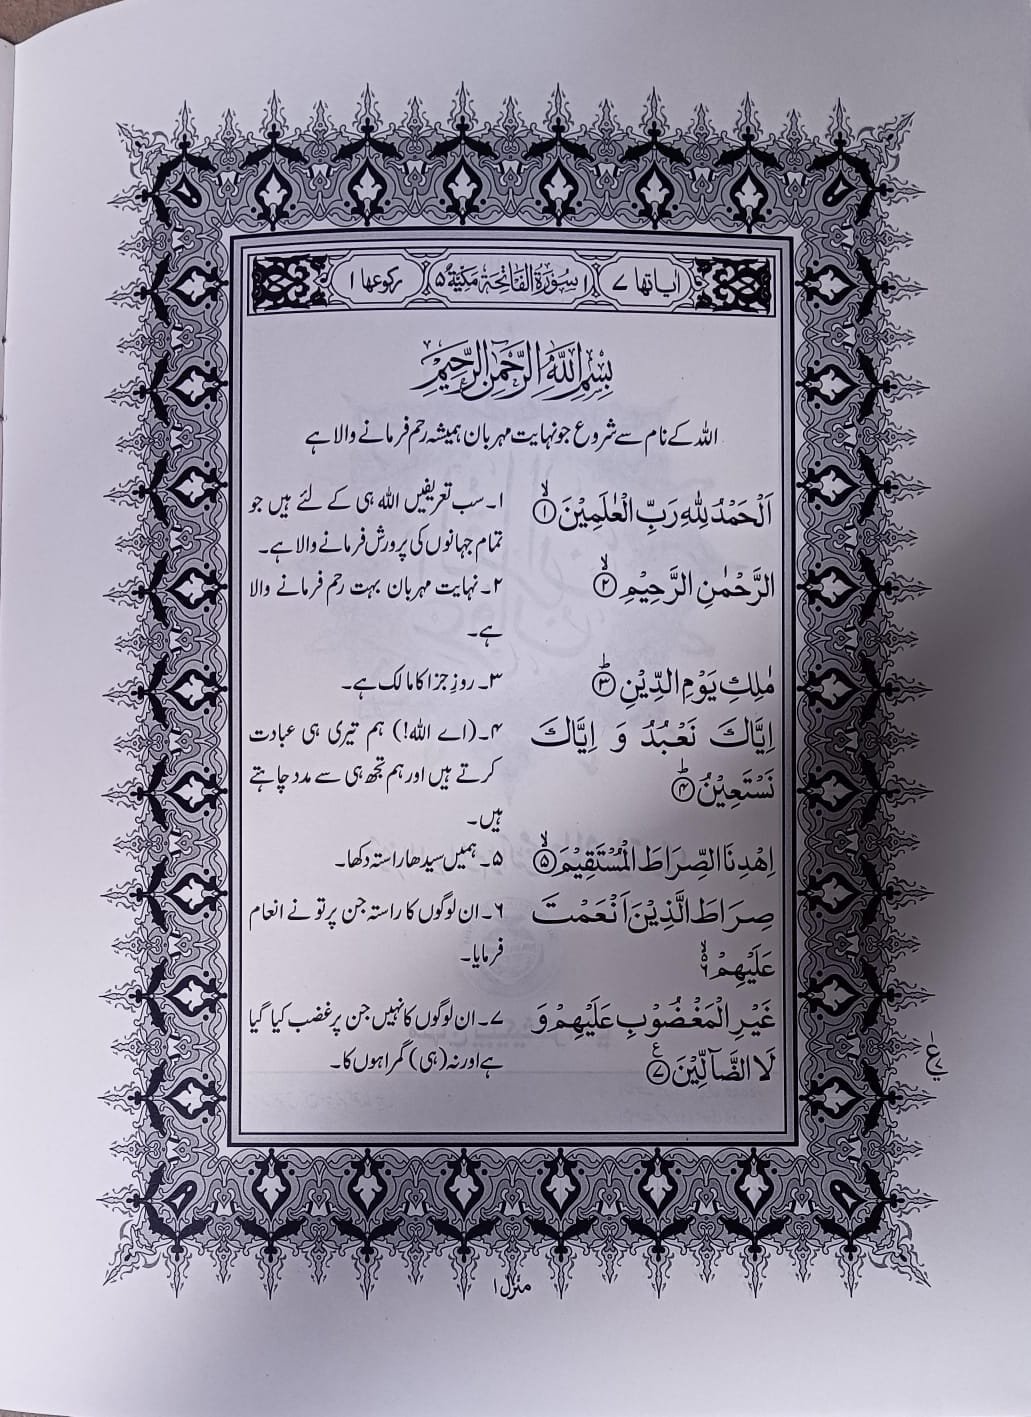 اٰیاتها ۷ ۱ سُوْرَةُ الْفَاتِحَةِ مَكِّيَّةٌ ۵ رکوعها ۱
بِسْمِ اللّٰهِ الرَّحْمٰنِ الرَّحِيْمِ
اللہ کے نام سے شروع جو نہایت مہربان ہمیشہ رحم فرمانے والا ہے
اَلْحَمْدُ لِلّٰهِ رَبِّ الْعٰلَمِيْنَ ۙ﴿۱﴾
۱۔ سب تعریفیں اللہ ہی کے لئے ہیں جو
تمام جہانوں کی پرورش فرمانے والا ہے۔
الرَّحْمٰنِ الرَّحِيْمِ ۙ﴿۲﴾
۲۔ نہایت مہربان بہت رحم فرمانے والا
ہے۔
مٰلِكِ يَوْمِ الدِّيْنِ ؕ﴿۳﴾
۳۔ روزِ جزا کا مالک ہے۔
اِيَّاكَ نَعْبُدُ وَ اِيَّاكَ
نَسْتَعِيْنُ ؕ﴿۴﴾
۴۔ (اے اللہ!) ہم تیری ہی عبادت
کرتے ہیں اور ہم تجھ ہی سے مدد چاہتے
ہیں۔
اِهْدِنَا الصِّرَاطَ الْمُسْتَقِيْمَ ۙ﴿۵﴾
۵۔ ہمیں سیدھا راستہ دکھا۔
صِرَاطَ الَّذِيْنَ اَنْعَمْتَ
عَلَيْهِمْ ۙ۬۶
۶۔ ان لوگوں کا راستہ جن پر تو نے انعام
فرمایا۔
غَيْرِ الْمَغْضُوْبِ عَلَيْهِمْ وَ
لَا الضَّآلِّيْنَ ﴿۷﴾ ع
۷۔ ان لوگوں کا نہیں جن پر غضب کیا گیا
ہے اور نہ (ہی) گمراہوں کا۔
منزل ۱